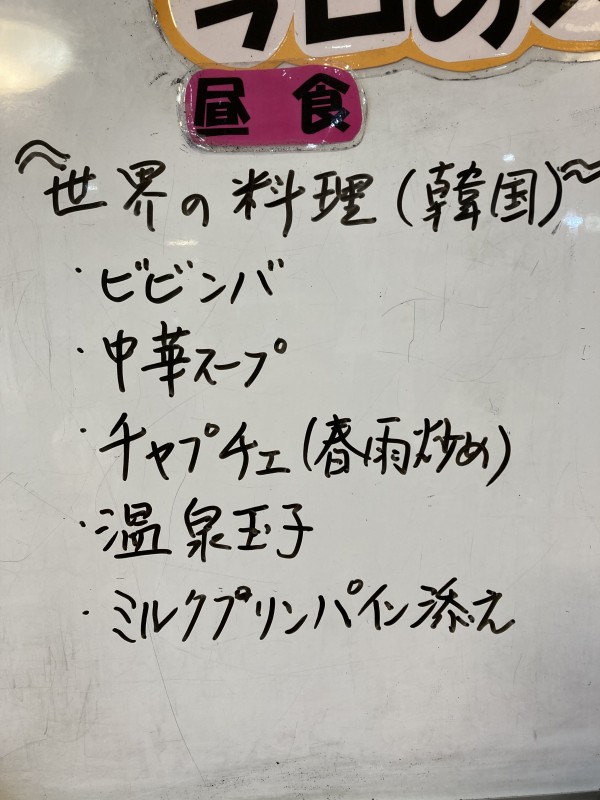 今日の
昼食
～世界の料理(韓国)～
・ビビンバ
・中華スープ
・チャプチェ(春雨炒め)
・温泉玉子
・ミルクプリンパイン添え